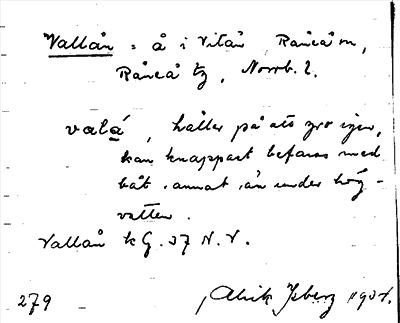 Vallån = å i Vitån, Råneå sn,
Råneå tg, Norrb. l.
valá, håller på att gro igen,
kan knappast befaras med
båt annat än under hög-
vatten.
Vallån kG. 37 N.V.
279 Alrik Isberg 1931.